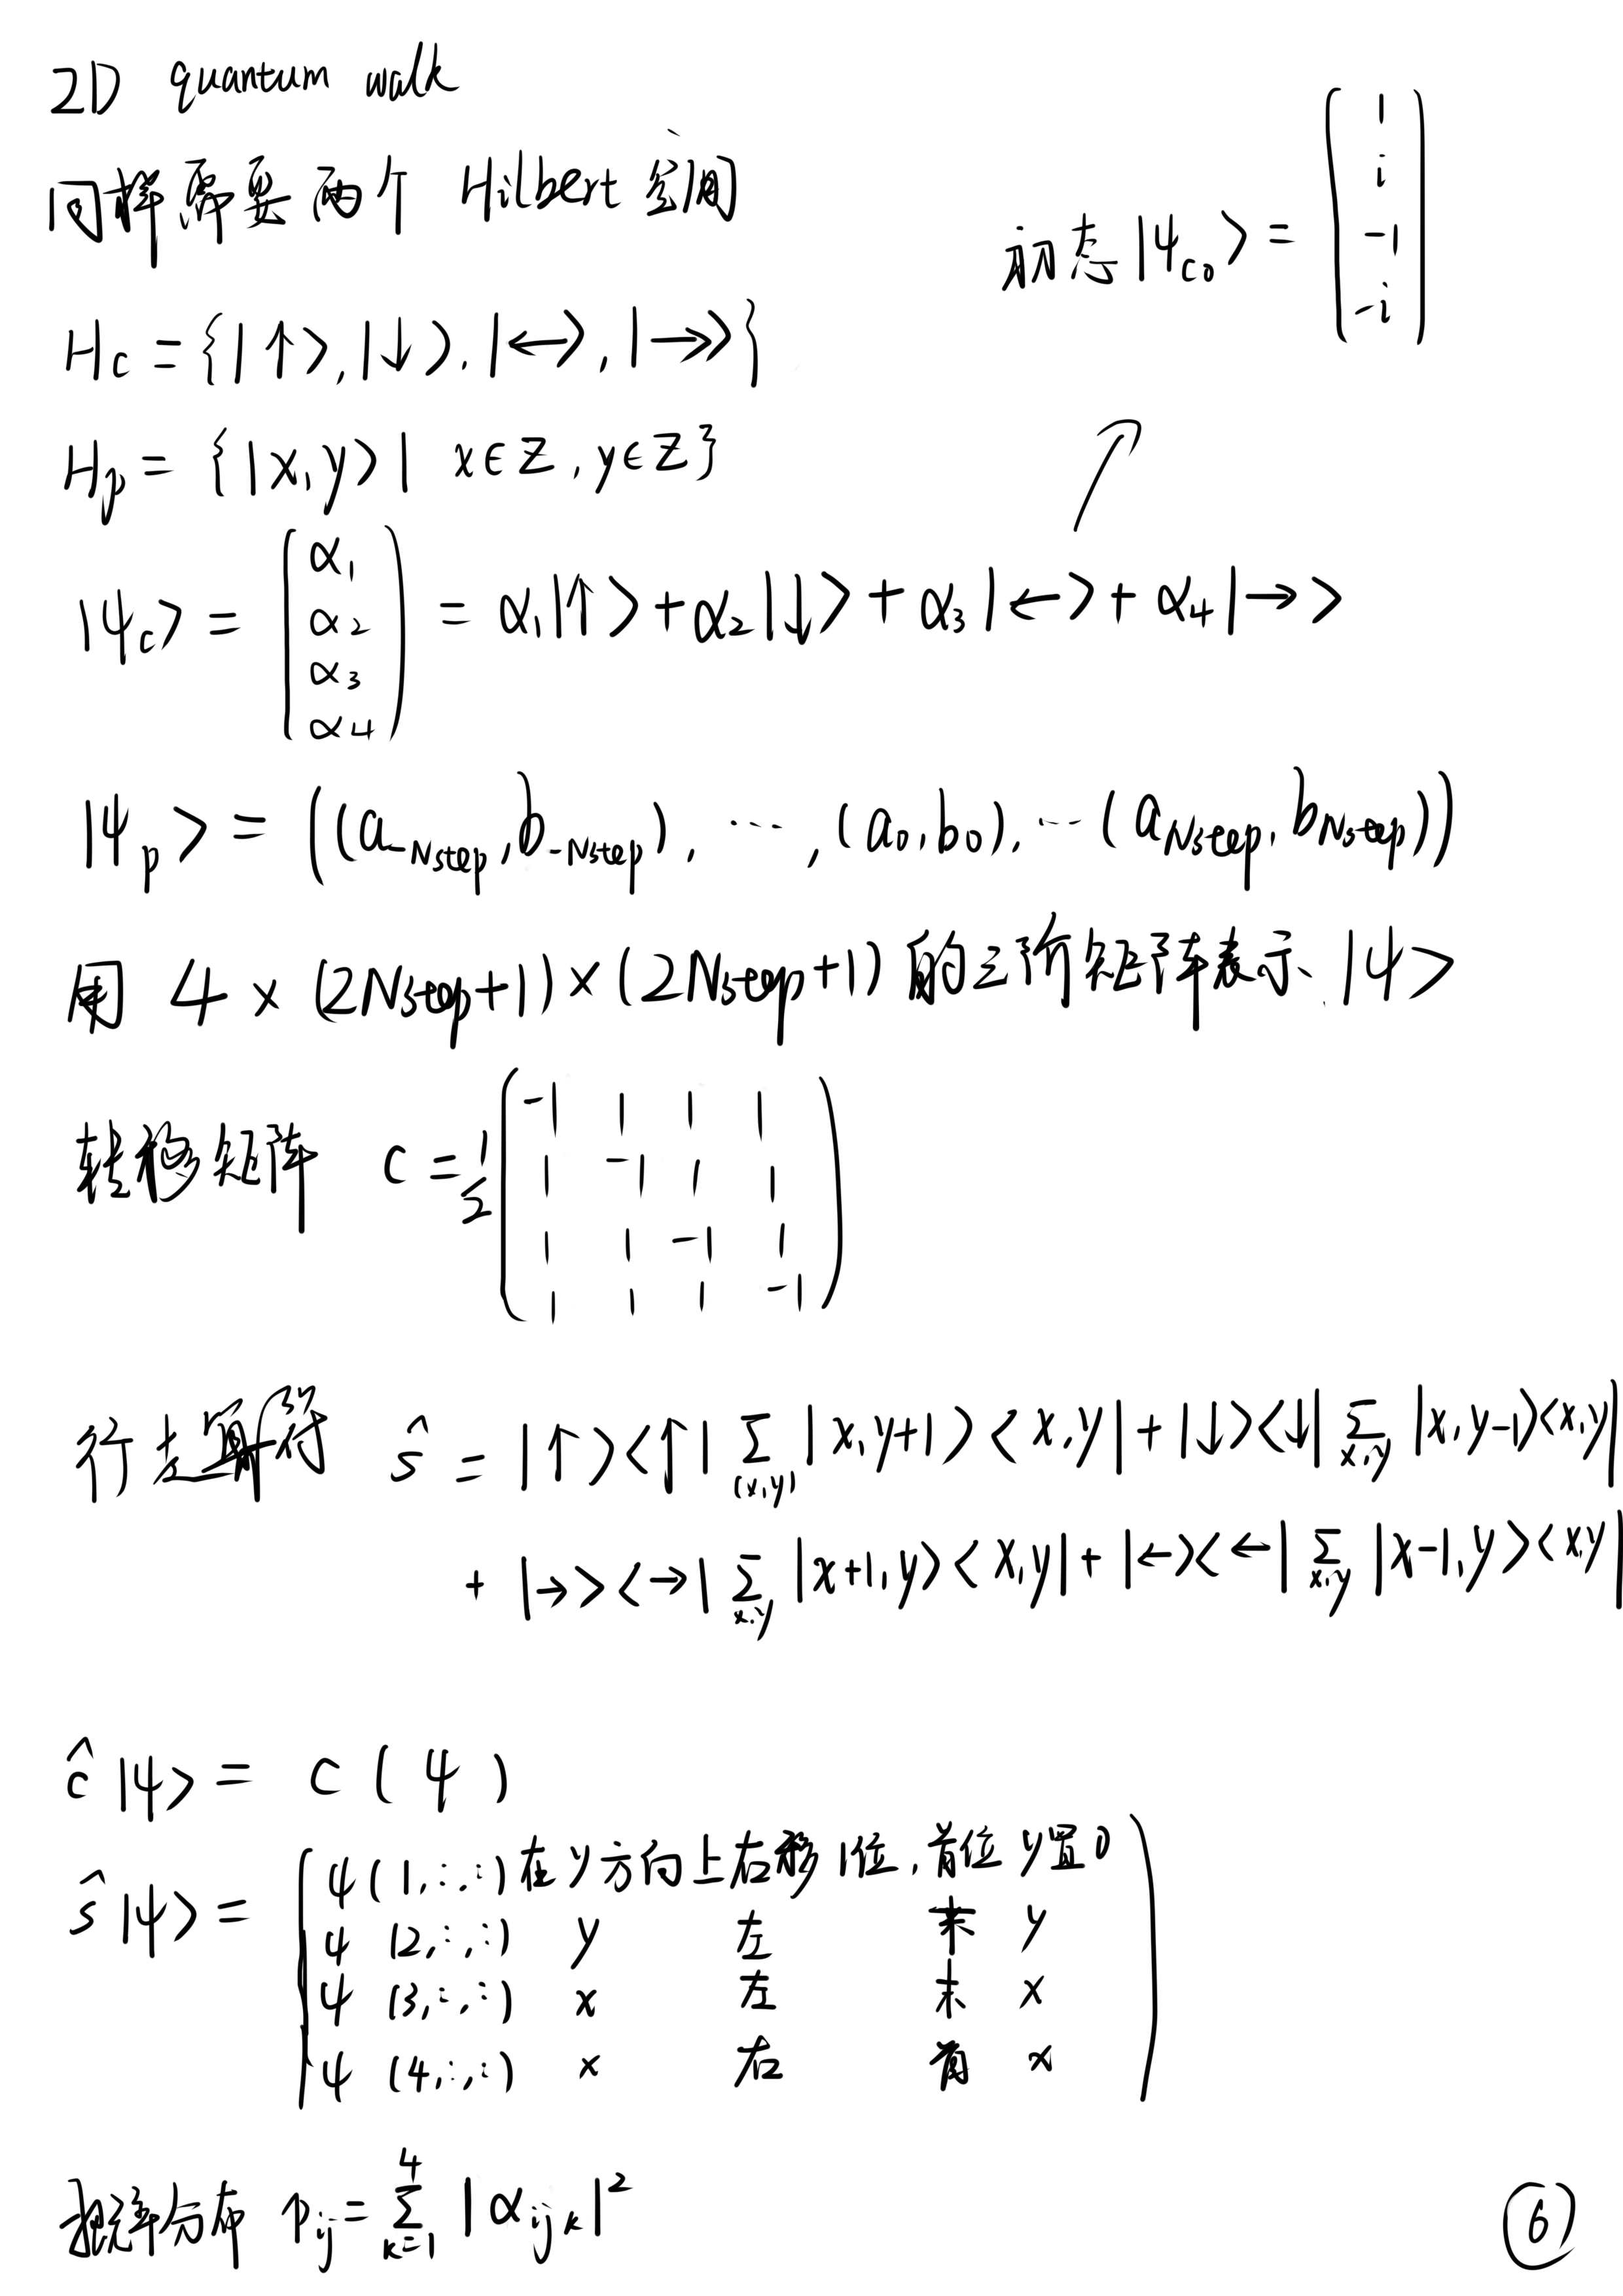 2D quantum walk
同样需要两个 Hilbert 空间
初态 |ψ_{c0}> = (1, i, -1, -i)
H_c = {|↑>, |↓>, |←>, |→>}
H_p = {|x,y> | x∈Z, y∈Z}
|ψ_c> = (α_1, α_2, α_3, α_4) = α_1|↑> + α_2|↓> + α_3|←> + α_4|→>
|ψ_p> = ((a_{-Nstep}, b_{-Nstep}), ..., (a_0, b_0), ... (a_{Nstep}, b_{Nstep}))
用 4 × (2Nstep+1) × (2Nstep+1) 的三阶矩阵表示 |ψ>
转移矩阵 C = 1/2
-1 1 1 1
1 -1 1 1
1 1 -1 1
1 1 1 -1
行走算符 ŝ = |↑><↑| Σ_{(x,y)} |x,y+1><x,y| + |↓><↓| Σ_{x,y} |x,y-1><x,y|
+ |→><→| Σ_{x,y} |x+1,y><x,y| + |←><←| Σ_{x,y} |x-1,y><x,y|
ĉ|ψ> = C (ψ)
ŝ|ψ> =
ψ(1,:,:) 在 y 方向上右移1位, 首位 y 置0
ψ(2,:,:) y 左 末 y
ψ(3,:,:) x 左 末 x
ψ(4,:,:) x 右 首 x
概率分布 p_{ij} = Σ_{k=1}^{4} |α_{ijk}|²
⑥